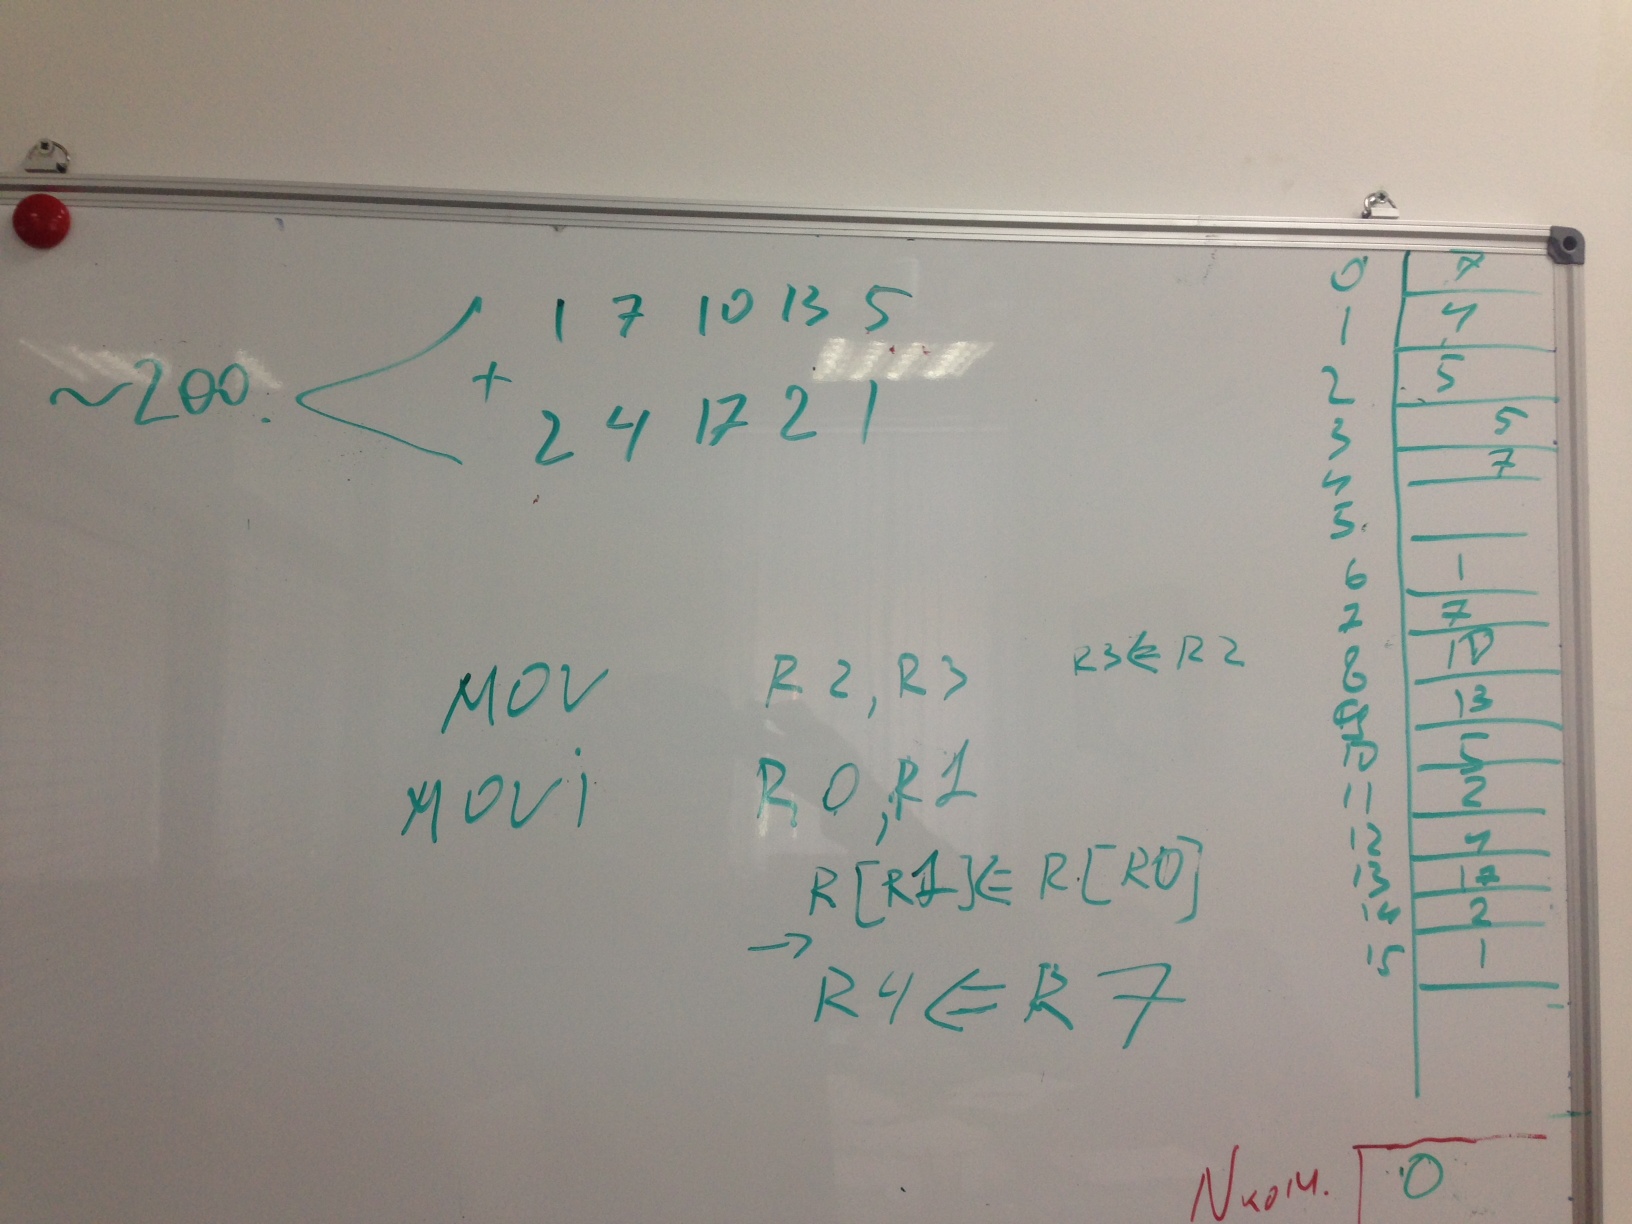 1 7 10 13 5
~200.
+
2 4 17 2 1
MOV R2, R3 R3⇐R2
MOVi R0, R1
R[R1]⇐R[R0]
→
R4⇐R7
0 7
1 4
2 5
3 5
4 7
5
6 1
7 7
8 10
9 13
10 5
11 2
12 4
13 17
14 2
15 1
Nком. 0